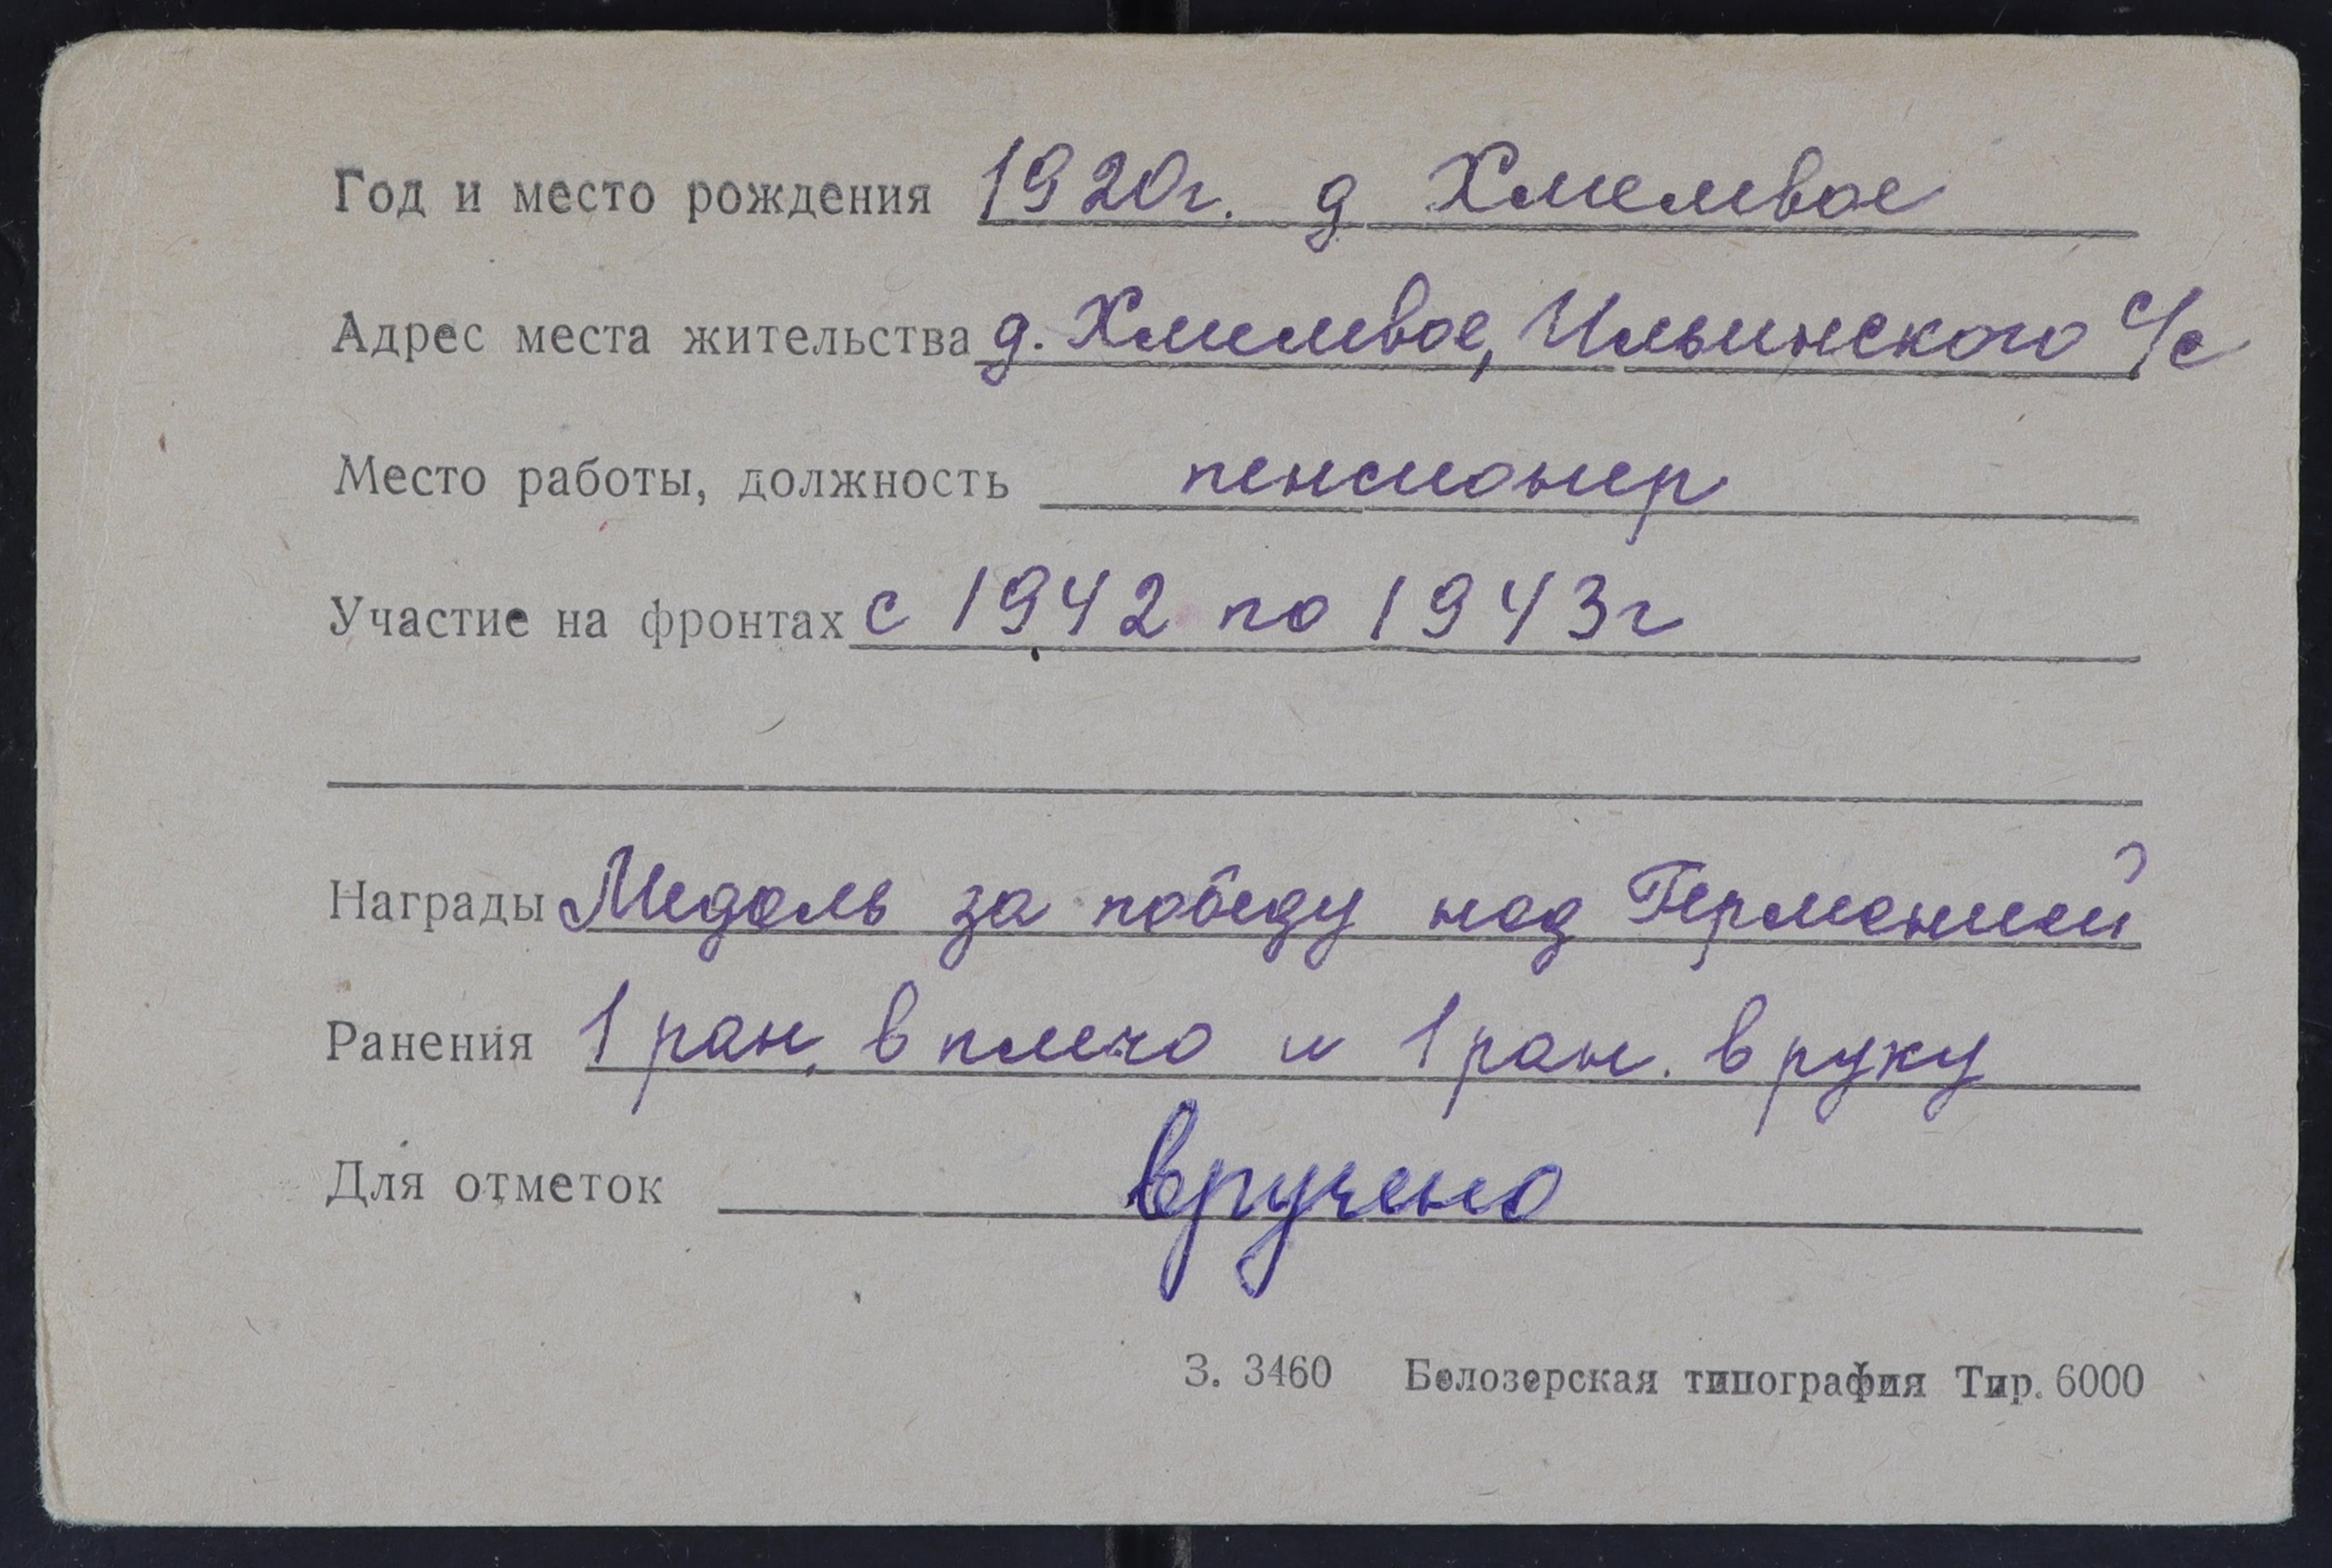 Год и место рождения 1920г. д Хмелевое
Адрес места жительства д. Хмелевое, Ильинского с/с
Место работы, должность пенсионер
Участие на фронтах с 1942 по 1943г
Награды Медаль за победу над Германией
Ранения 1 ран. в плечо и 1 ран. в руку
Для отметок вручено
З. 3460 Белозерская типография Тир. 6000